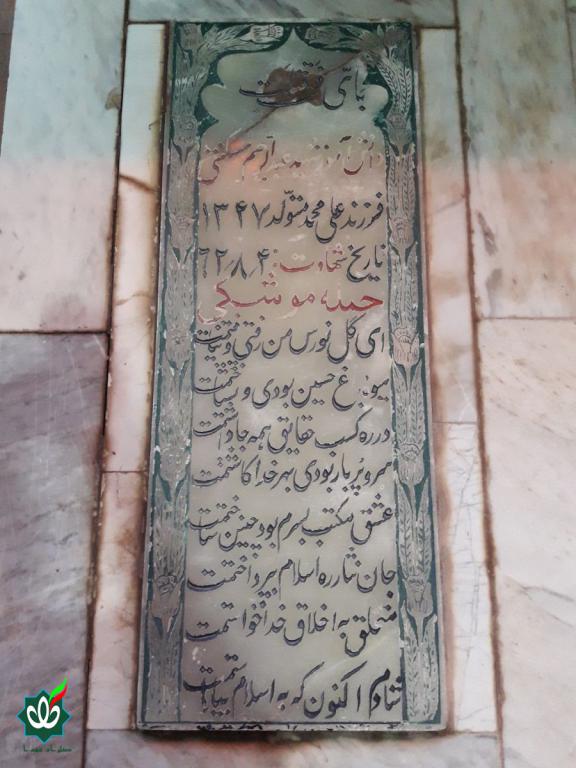 باقی
دانش آموز شهید
فرزند علی محمد متولد ۱۳۴۷
تاریخ شهادت: ۴ر۸ر۶۲
حمله موشکی
ای گل نورس من رفتی و نشناختمت
میوه باغ حسین بودی و نشناختمت
در ره کسب حقایق همه جا داشتمت
سرو پر بار بودی بهر خدا کاشتمت
عشق مکتب بسرم بود چنین ساختمت
جان نثار ره اسلام بپرداختمت
متخلق به اخلاق خدا خواستمت
شادم اکنون که به اسلام